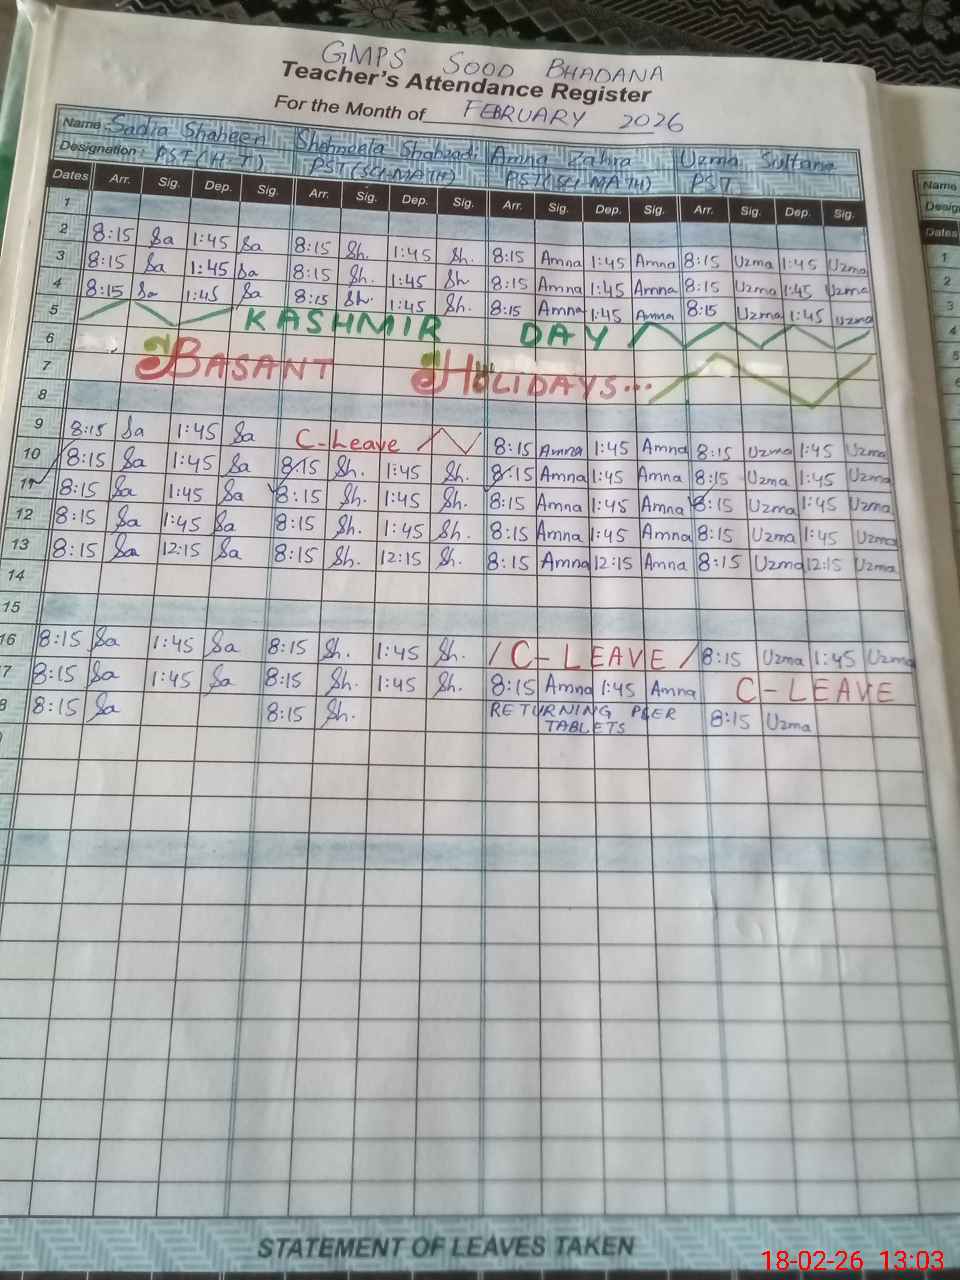 GMPS SOOD BHADANA
Teacher's Attendance Register
For the Month of FEBRUARY 2026
Name Sadia Shaheen Shehneela Shahzadi Amna Zahra Uzma Sultana
Designation PST(H-T) PST(SCI-MATH) PST(SCI-MATH) PST
Dates Arr. Sig. Dep. Sig. Arr. Sig. Dep. Sig. Arr. Sig. Dep. Sig. Arr. Sig. Dep. Sig.
1
2 8:15 Sa 1:45 Sa 8:15 Sh. 1:45 Sh. 8:15 Amna 1:45 Amna 8:15 Uzma 1:45 Uzma
3 8:15 Sa 1:45 Sa 8:15 Sh. 1:45 Sh 8:15 Amna 1:45 Amna 8:15 Uzma 1:45 Uzma
4 8:15 Sa 1:45 Sa 8:15 Sh. 1:45 Sh. 8:15 Amna 1:45 Amna 8:15 Uzma 1:45 Uzma
5 KASHMIR DAY
6
7 BASANT HOLIDAYS...
8
9 8:15 Sa 1:45 Sa C-Leave 8:15 Amna 1:45 Amna 8:15 Uzma 1:45 Uzma
10 8:15 Sa 1:45 Sa 8:15 Sh. 1:45 Sh. 8:15 Amna 1:45 Amna 8:15 Uzma 1:45 Uzma
11 8:15 Sa 1:45 Sa 8:15 Sh. 1:45 Sh. 8:15 Amna 1:45 Amna 8:15 Uzma 1:45 Uzma
12 8:15 Sa 1:45 Sa 8:15 Sh. 1:45 Sh. 8:15 Amna 1:45 Amna 8:15 Uzma 1:45 Uzma
13 8:15 Sa 12:15 Sa 8:15 Sh. 12:15 Sh. 8:15 Amna 12:15 Amna 8:15 Uzma 12:15 Uzma
14
15
16 8:15 Sa 1:45 Sa 8:15 Sh. 1:45 Sh. / C-LEAVE / 8:15 Uzma 1:45 Uzma
7 8:15 Sa 1:45 Sa 8:15 Sh. 1:45 Sh. 8:15 Amna 1:45 Amna C-LEAVE
8 8:15 Sa 8:15 Sh. RETURNING PEER 8:15 Uzma
TABLETS
STATEMENT OF LEAVES TAKEN
Name
Desig
Dates
1
2
3
4
5
18-02-26 13:03